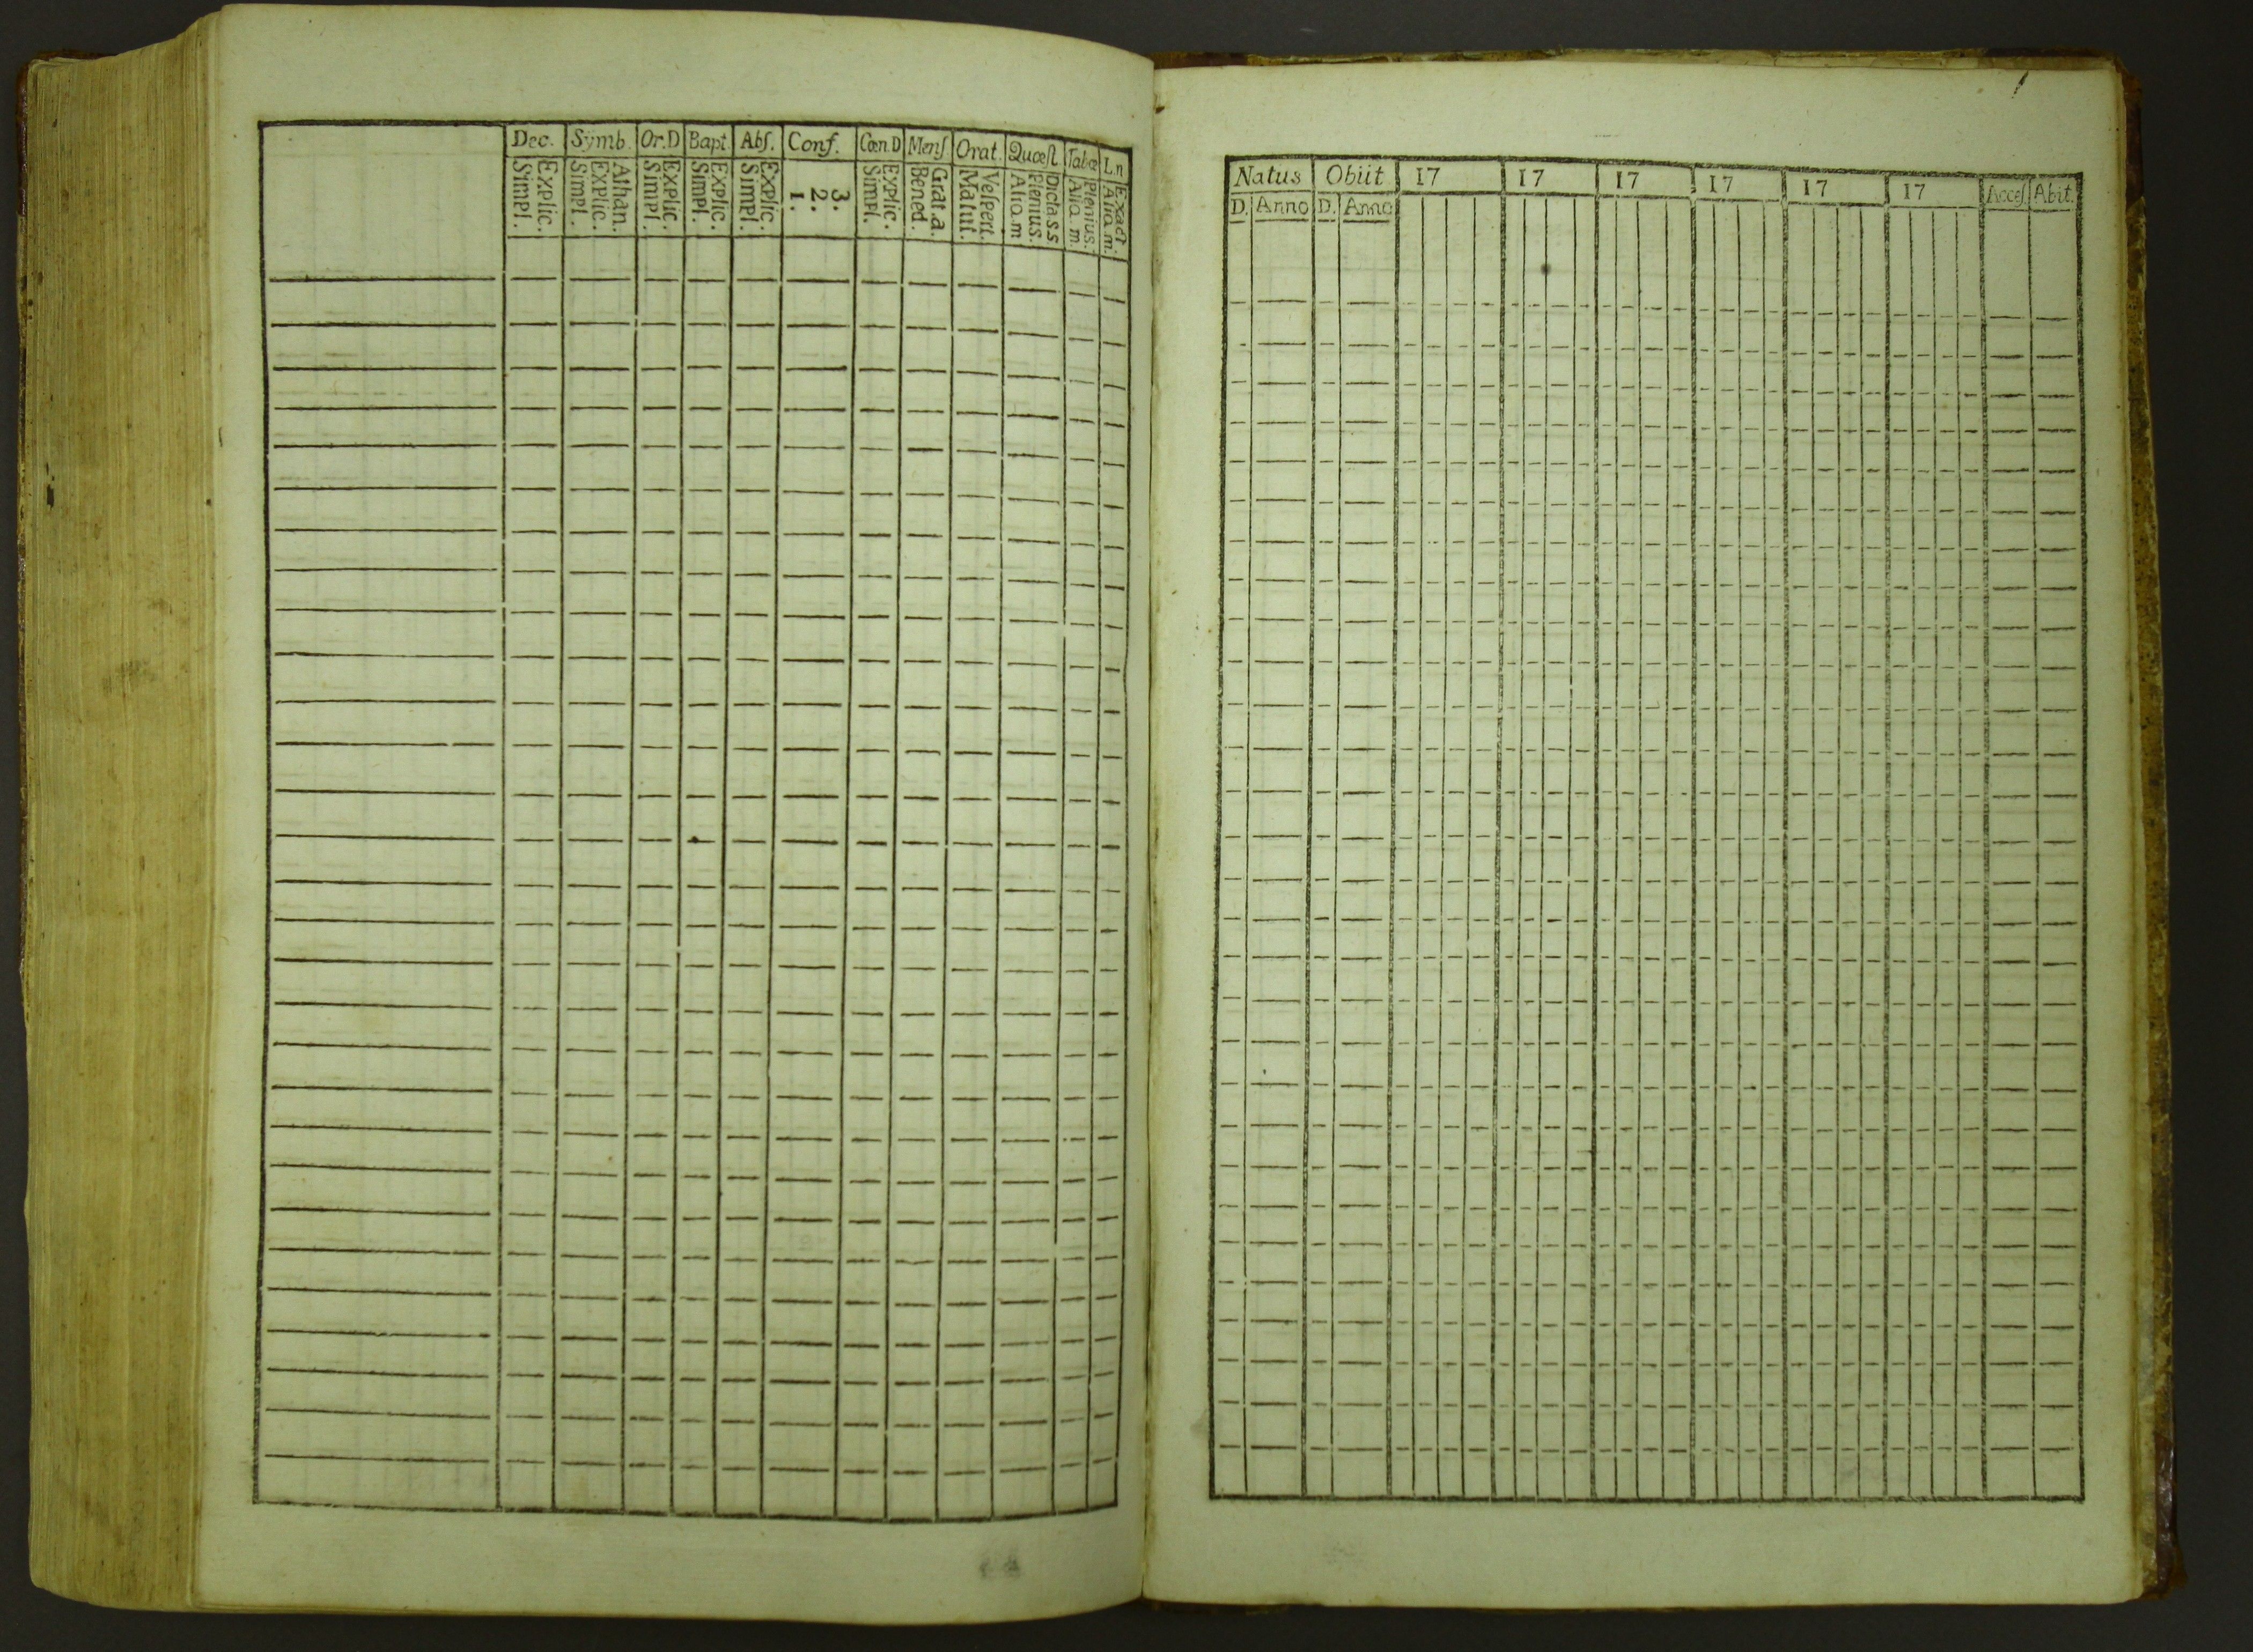 Dec. Symb. Or.D Bapt. Abſ. Conf. Cœn.D Menſ Orat. Quæſt. Tabœ L.n
Simpl. Explic. Simpl. Explic. Athan. Simpl. Explic. Simpl. Explic. Simpl. Explic. 1. 2. 3. Simpl. Explic. Bened. Grat.a. Matut. Veſpert. Aliq.m Plenius. Dicta.s.s Aliq.m. Plenius. Aliq.m. Exact
Natus Obiit 17 17 17 17 17 17 Acceſ. Abit.
D. Anno D. Anno